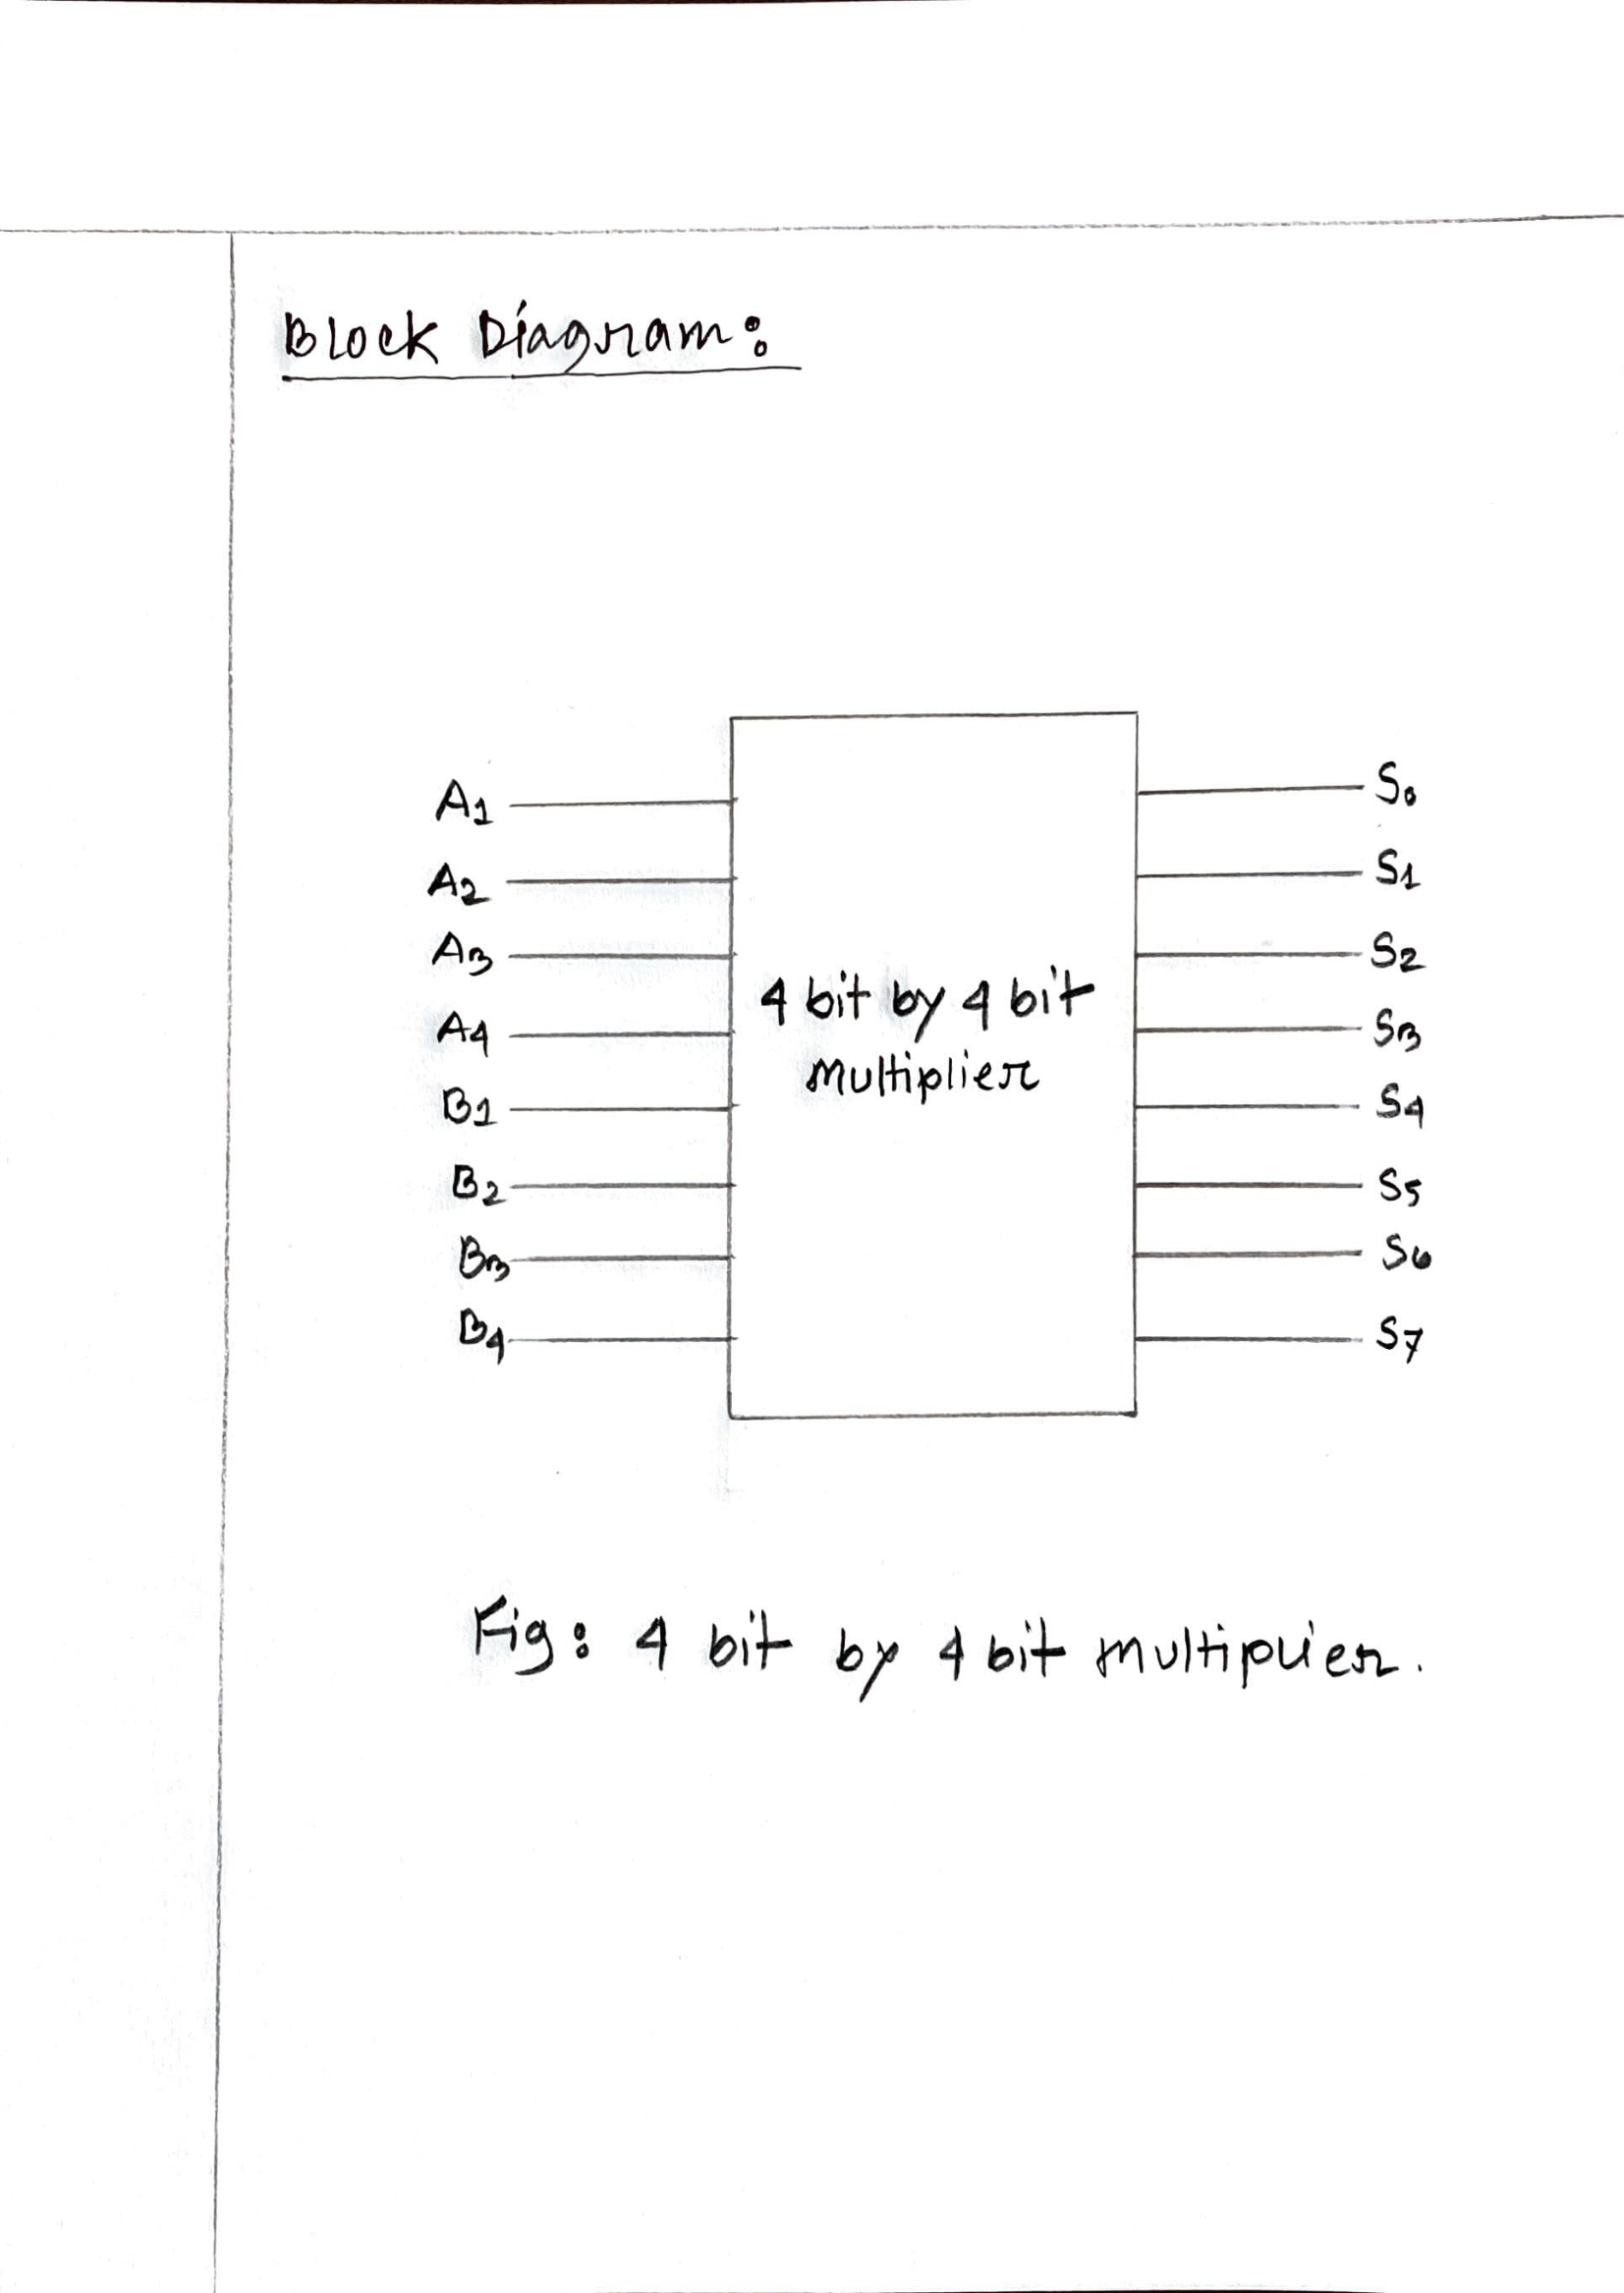 Block Diagram:
A1
A2
A3
A4
B1
B2
B3
B4
4 bit by 4 bit
Multiplier
S0
S1
S2
S3
S4
S5
S6
S7
Fig: 4 bit by 4 bit multiplier.